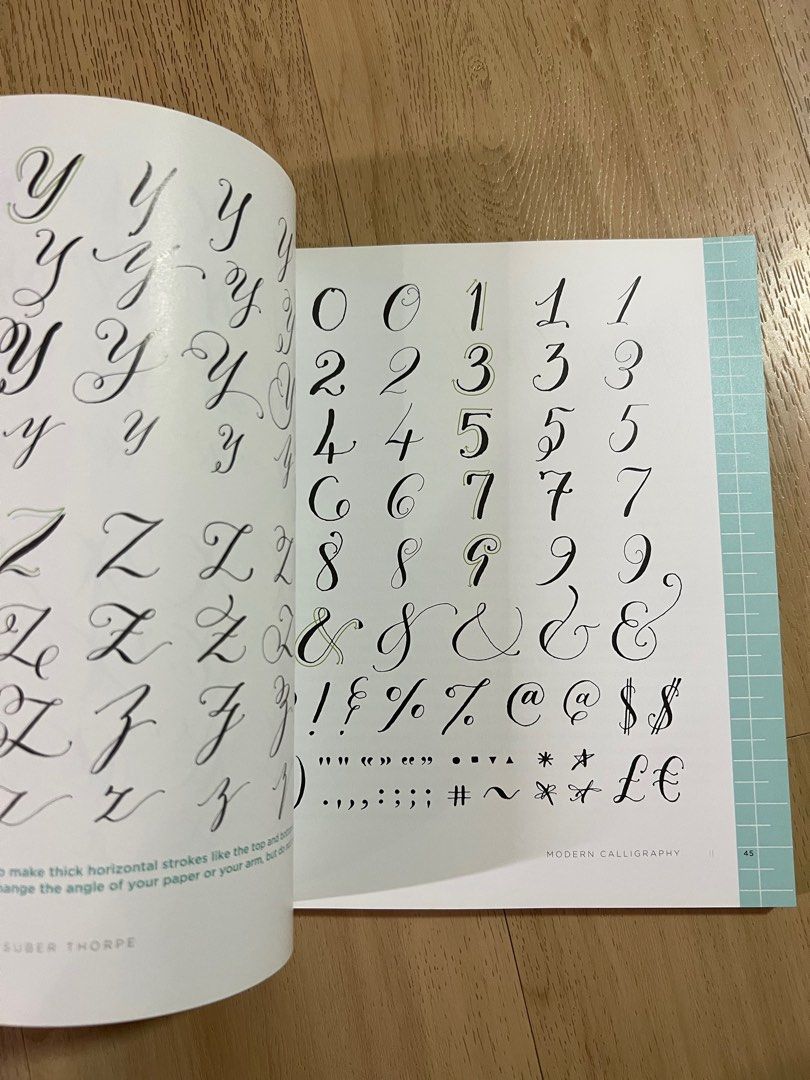 y y y y
y y y y
y y y y
y y y y
Z Z Z Z
Z Z Z Z
Z z z z
z z z z
make thick horizontal strokes like the top and
the angle of your paper or your arm, but do
SUBER THORPE
0 0 1 1 1
2 2 3 3 3
4 4 5 5 5
6 6 7 7 7
8 8 9 9 9
& & & & &
! & % % @ @ $ $
) " " « » “ ” • ■ ▼ ▲ * *
. , , , : ; ; ; # ~ * * £ €
MODERN CALLIGRAPHY || 45